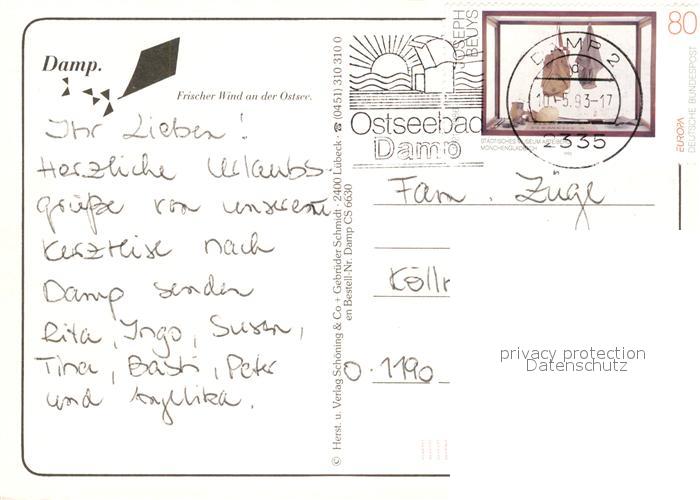 Damp.
Frischer Wind an der Ostsee.
Ihr Lieben!
Herzliche Urlaubs-
grüße von unserem
Kurzreise nach
Damp senden
Rita, Ingo, Susan,
Tina, Basti, Peter
und Angelika.
© Herst. u. Verlag Schöning & Co + Gebrüder Schmidt · 2400 Lübeck · ☎ (0451) 310 310 0
en Bestell-Nr. Damp CS 6630
Ostseebad
Damp
JOSEPH
BEUYS
80
DEUTSCHE BUNDESPOST
EUROPA
STÄDTISCHES MUSEUM
MÖNCHENGLADBACH
DAMP 2
10.-5.93-17
2335
Fam. Züge
Kölln
O.1190
privacy protection
Datenschutz